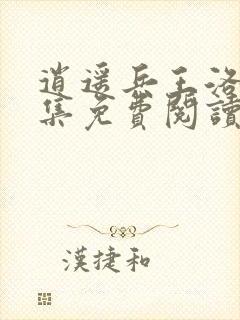 逍遥兵王洛
集免費閱讀
漢捷和